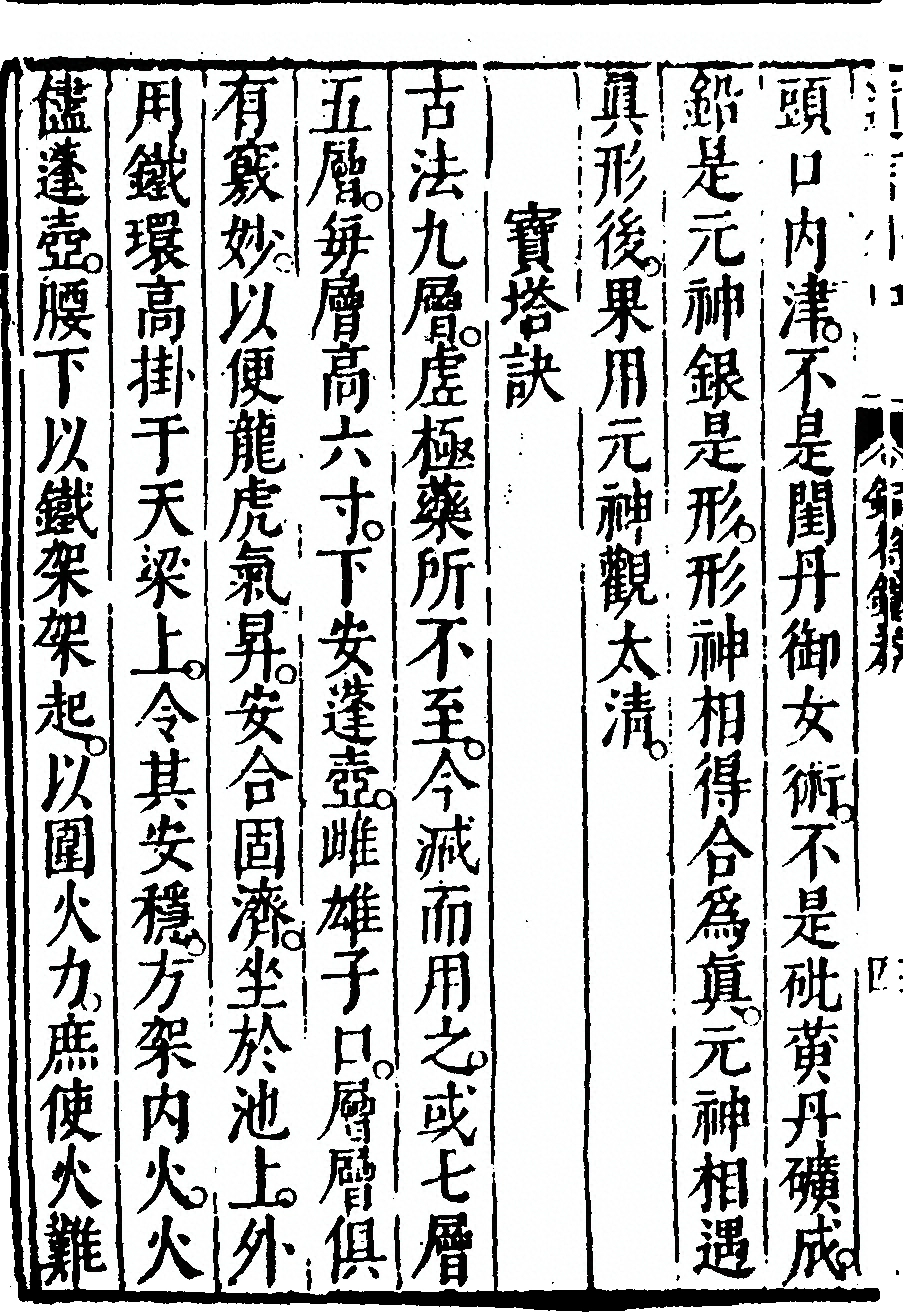 頭口内津。不是閨丹御女術。不是砒黄丹礦成。
鉛是元神銀是形。形神相得合為眞。元神相遇
眞形後。果用元神觀太清。
寶塔訣
古法九層。虚極藥所不至。今减而用之。或七層
五層。每層高六寸。下安蓬壺。雌雄子口。層層俱
有竅妙。以便龍虎氣昇。安合固濟。坐於池上。外
用鐵環高掛于天梁上。令其安穩。方架内火。火
儘蓬壺。腰下以鐵架架起。以圍火力。庶使火難